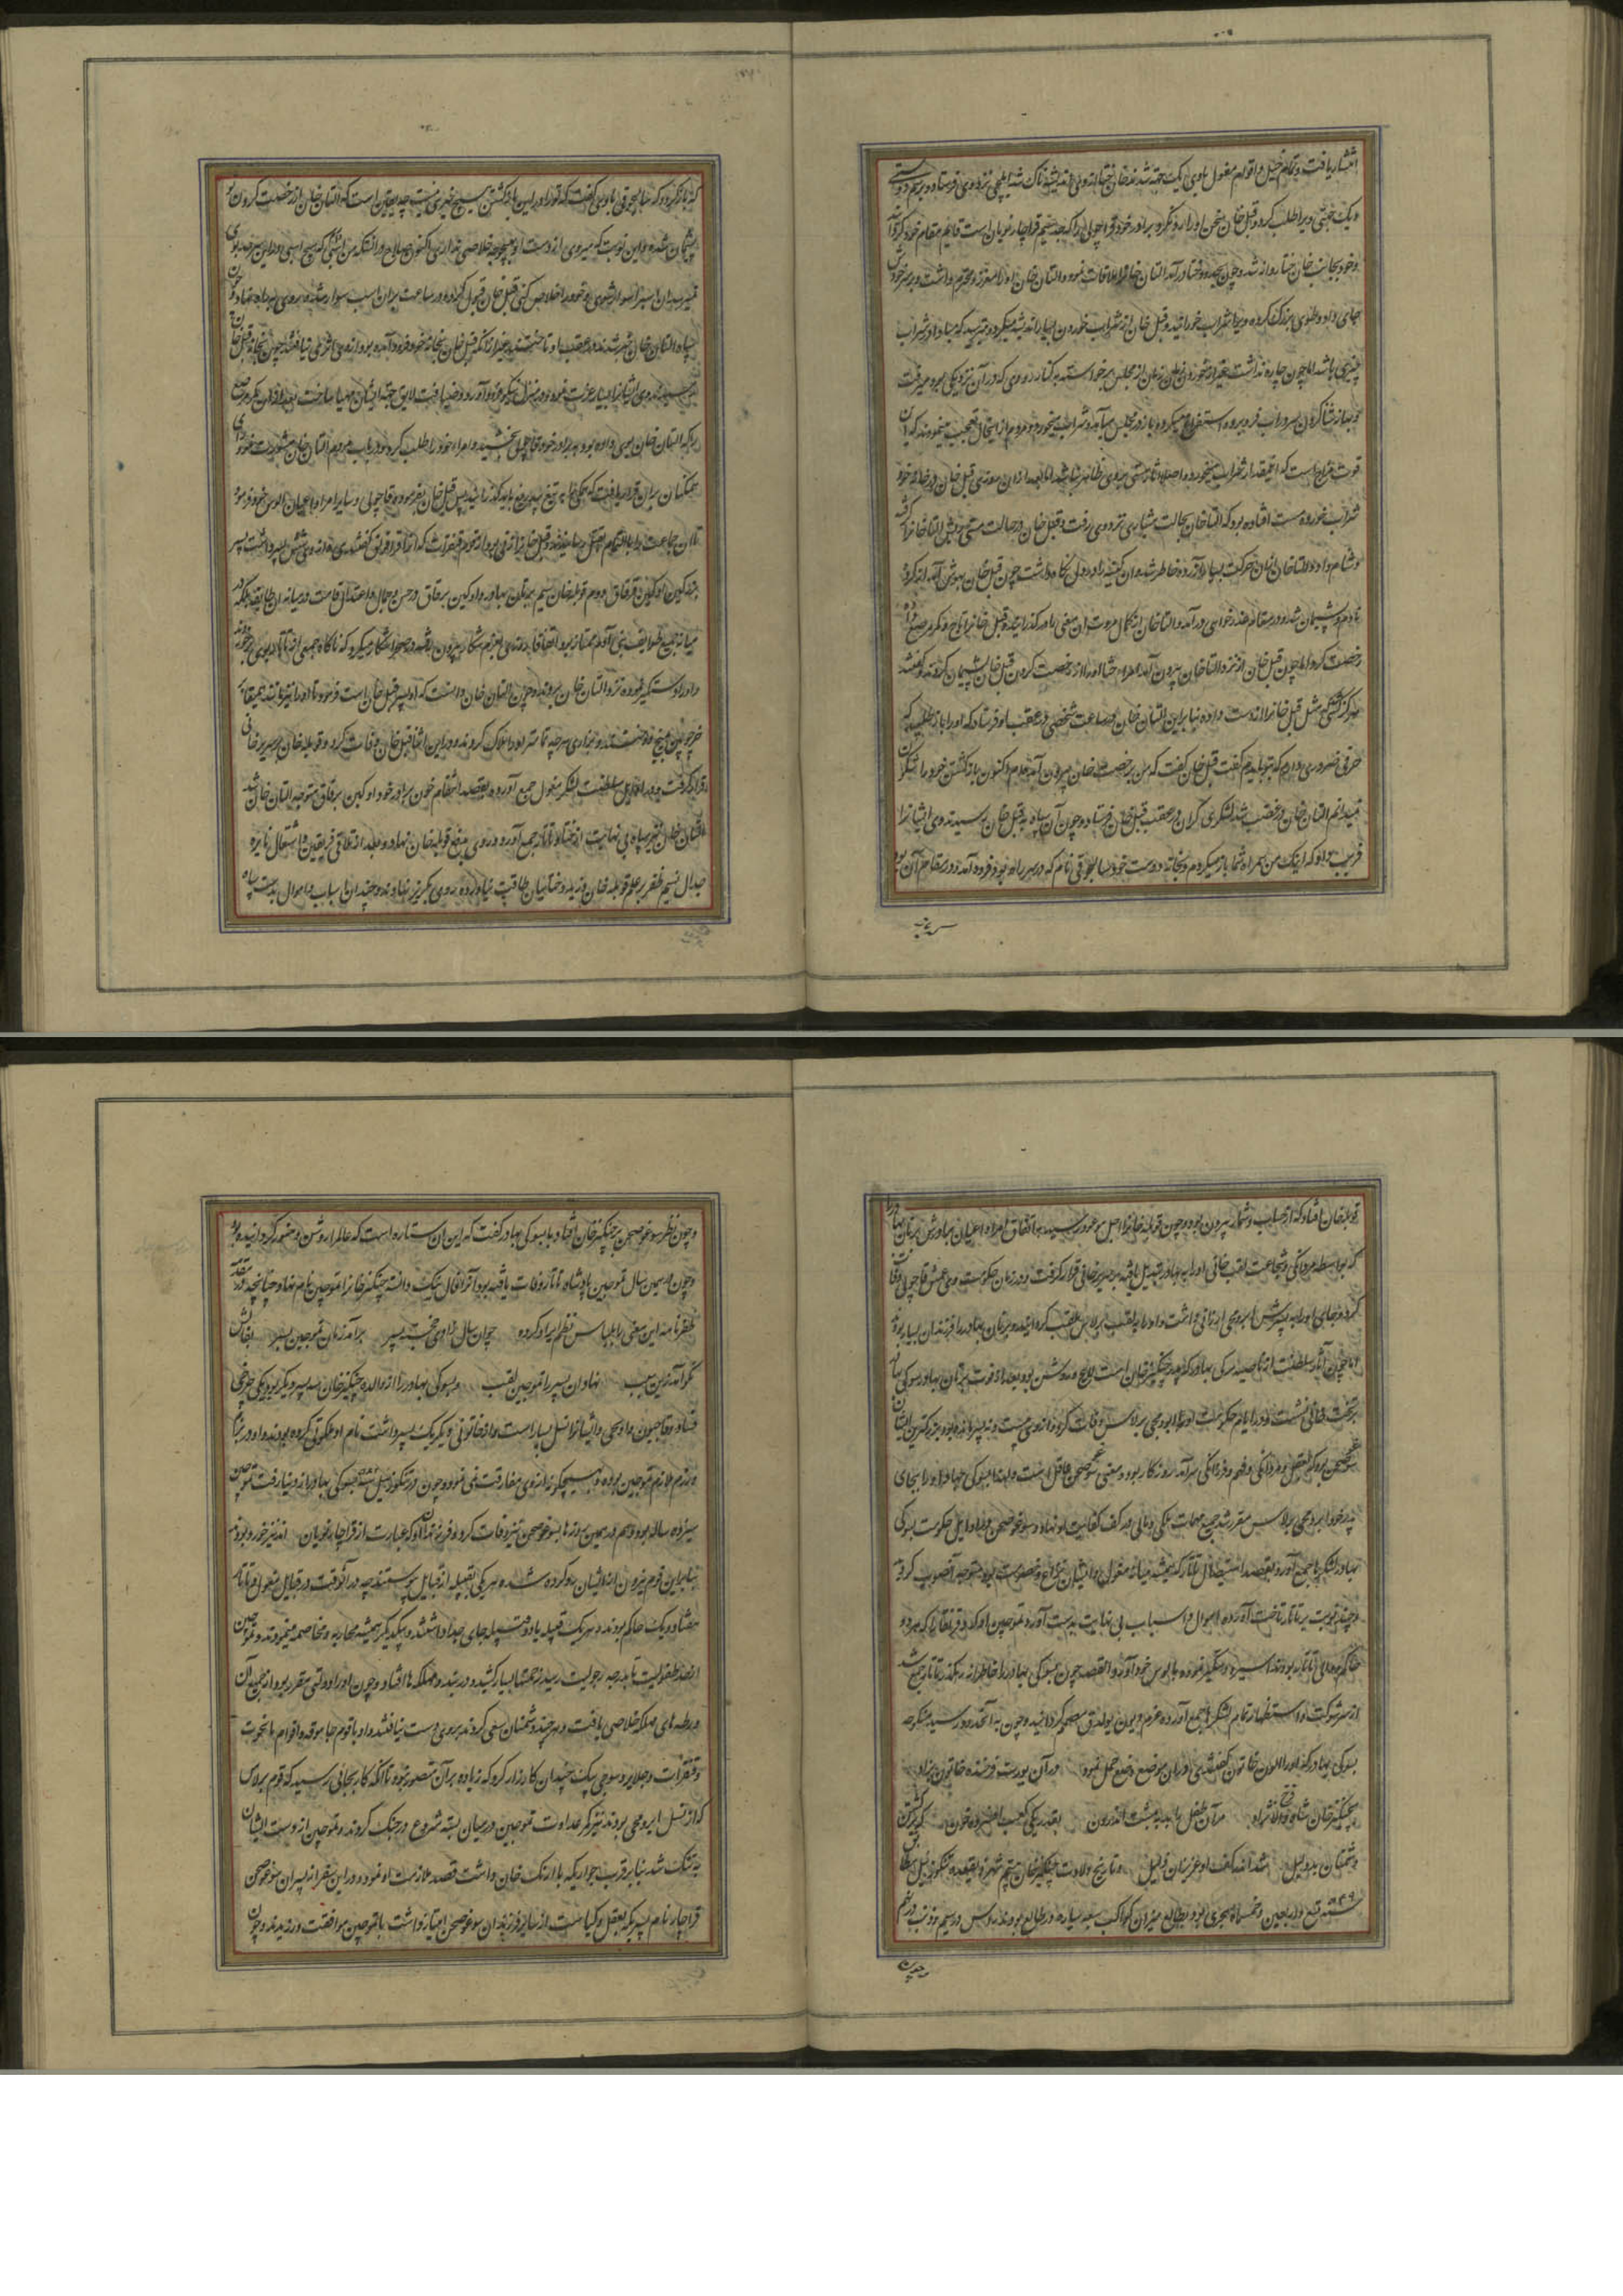 انتشار یافت و تمام خیل و اقوام مغول با وی یک جهته شدند خان ختا از وی اندیشه ناک شد ایلچی نزد وی فرستاد و برسم دوستی
و یک جهتی ویرا طلب کرد و قبل خان سخن او را رد نکرده برادر خود قاچولی را که جد پنجم قراچار نویان است قایم مقام خود کرد
و خود بجانب خان ختا روانه شد و چون بحدود ختا در آمد التان خان را ملاقات نمود و التان خان او را معزز و محترم داشت و بر سر خود
جای داد و طوی بزرگ کرده ویرا شراب خورانید و قبل خان از شراب خوردن بسیار اندیشه میکرد و میترسید که مبادا در شراب
چیزی باشد اما چون چاره نداشت بغیر از خوردن زمان زمان از مجلس برخواسته به کنار رودی که در آن نزدیکی بود میرفت
و بهانه شنا کردن سر در آب فرو برده استفراغ میکرد و باز در مجلس می آمد و شراب میخورد و مردم از اینحال تعجب مینمودند که این
قوت مزاج است که اینمقدار شراب میخورد و اصلا آثار مستی بر وی ظاهر نمیشد اما بعد از آن روزی قبل خان در خانه خود
شراب خورده مست افتاده بود که التان خان بحالت هشیاری نزد وی رفت و قبل خان در حالت مستی ریش التان خان را گرفته
دشنام داد و التان خان از آن حرکت بسیار آزرده خاطر شد و آن کینه را در دل نگاه داشت چون قبل خان بهوش آمد از کرده
نادم و پشیمان شد و در مقام عذر خواهی در آمد و التان خان از کمال مروت آن معنی را در گذرانید و قبل خان را تاج و کمر مرصع داده
رخصت کرد اما چون قبل خان از نزد التان خان بیرون آمد امراء ختا او را از رخصت کردن قبل خان پشیمان کردند و گفتند
هرگز کسی مثل قبل خان را از دست داده بنابراین التان خان در ساعت شخصی در عقب او فرستاد که او را باز طلبید که
حرفی ضروری دارم که بتو بایدم گفت قبل خان گفت که من برخصت خان بیرون آمده ام و اکنون باز گشتن خود را شگون
نمیدانم التان خان در غضب شد لشکری گران در عقب قبل خان فرستاد و چون آن سپاه به قبل خان رسیدند وی ایشانرا
فریب داد که اینک من همراه شما باز میگردم و بخانه دوست خود سالجوقی نام که در سر راه بود فرود آمد و در مقام آن بود
که باز گردد که سالجوقی با وی گفت که ترا در این باز گشتن هیچ خیری نیست چه یقین است که التان خان از رخصت کردن تو
پشیمان شده و این نوبت که میروی از دست او بهیچ وجه خلاصی نداری اکنون صلاح در آنست که من اسبی دارم که هیچ اسبی در این سرحد بوی
نمیرسد بر آن اسب سوار شوی و خود را خلاص کنی قبل خان قبول کرده در ساعت بر آن اسب سوار شد و روی براه نهاد و چون
سپاه التان خان خبر شدند در عقب او تاختند بعد از آنکه قبل خان بخانه خود فرود آمده بود از وی اثری نیافتند چون بخانه قبل خان
رسیدند وی ایشانرا بسیار عزت نموده در منزل نیکو فرود آورد و ضیافت لایق جهة ایشان مهیا ساخت
را که التان خان بوی داده بود به برادر خود قاچولی بخشید و امراء خود را طلب کرده در باب مردم التان خان مشورت نمود رای
همگنان بر آن قرار یافت که همگی را به تیغ بیدریغ باید گذرانید پس قبل خان بفرموده قاچولی و سایر امرا و اعیان الوس خود فرمود
تا آن جماعت را بالتمام بقتل رسانیدند و قبل خان را زنی بود از قوم قنقرات که از او شش پسر داشت پسر
بزرگین اوکین برقاق و دوم قوبله خان سیم برتان بهادر و اوکین برقاق در حسن و جمال و اعتدال قامت در میانه آن طایفه بلکه در
میانه جمیع طوایف بنی آدم ممتاز بود اتفاقا روزی بعزم شکار بیرون رفته در صحرا شکار میکرد که ناگاه جمعی از تاتار بوی برخوردند
و او را دستگیر نموده نزد التان خان بردند و چون التان خان دانست که او پسر قبل خان است فرمود تا او را
خر چوبین بمیخ دوختند و بخواری هر چه تمامتر او را هلاک کردند و در این اثنا قبل خان وفات کرد و قوبله خان بر سریر خانی
قرار گرفت و در اوایل سلطنت لشکر مغول جمع آورده بقصد انتقام خون برادر خود اوکین برقاق متوجه التان خان شد
التان خان نیز سپاه بی نهایت از ختا و تاتار جمع آورد و روی بدفع قوبله خان نهاد و بعد از تلاقی فریقین و اشتعال نایره
جدال نسیم ظفر بر علم قوبله خان وزید و ختاییان طاقت نیاورده روی بگریز نهادند و چندان اسباب و اموال بدست سپاه
قوبله خان افتاد که از حساب و شمار بیرون بود و چون قوبله خانرا اجل موعود رسید به اتفاق امراء و اعیان برادرش برتان بهادر را
که بواسطه مردانگی و شجاعت لقب خانی او را به بهادر تبدیل یافته بود بر سریر خانی قرار گرفت و در زمان حکومت وی عمش قاچولی وفات
کرد و جای او را به پسرش ایرومجی ارزانی داشت و او را به لقب برلاس ملقب گردانیدند و برتان بهادر را فرزندان بسیار بود
اما چون آثار سلطنت از ناصیه یسوکی بهادر که پدر چنگیز خان است لایح و روشن بود بعد از فوت برتان بهادر یسوکی بهادر
بر تخت خانی نشست و در ایام حکومت او ایرومجی برلاس وفات کرد و از وی بیست و نه پسر مانده بود بزرگترین ایشان
سوغوجیجن بود که بعقل و مردانگی و فهم و فرزانگی سرآمد روزگار بود و معنی سوغوجیجن عاقل است و لهذا یسوکی بهادر او را بجای
پدر خود ایرومجی برلاس مقرر شد جمیع مهمات ملکی و مالی در کف کفایت او نهاد و سوغوجیجن در اوایل حکومت یسوکی
بهادر لشکرها جمع آورد و بقصد استیصال تاتار که همیشه میانه مغول و ایشان نزاع و خصومت بود متوجه آنصوب کرد
و چند نوبت بر تاتار تاخت آورده اموال و اسباب بی نهایت بدست آورد و تموجین اوکه و قرابقا که هر دو
حاکم و والی تاتار بودند اسیر و دستگیر نموده بالوس خود آورد القصه چون یسوکی بهادر را خاطر از رهگذر تاتار جمع شد
از سر شوکت و استظهار تمام لشکرها جمع آورده عزم دیون بولدق مصمم گردانید و چون به آنحدود رسید منکوحه
یسوکی بهادر که او را اولون خاتون گفتندی در آن موضع وضع حمل نمود در آن یورت فرخنده خاتون بزاد
چنگیز خان شاه فرخ نژاد مر آن طفل را بد به مشت اندرون بقدر یکی کعب افسرده خون که برکشتن
دشمنان بد دلیل شد آنند گفت او عزیزان ذلیل و تاریخ ولادت چنگیز خان بیستم شهر ذیقعده تنگوز ییل مطابق
سنه تسع و اربعین و خمسمائه هجری بود و بطالع میزان کواکب سبعه سیاره در طالع بودند و راس در سیم و ذنب در نهم
۵۴۹
و چون نظر سوغوجیجن بر چنگیز خان افتاد با یسوکی بهادر گفت که این آن ستاره است که عالم را روشن و منور گرداند
و چون در همین سال تموجین پادشاه تاتار وفات یافته بود آنرا فال نیک دانسته چنگیز خانرا تموجین نام نهاد چنانچه در مقدمه
ظفرنامه این معنی را بلباس نظم ایراد کرده چو آن سال زادی خجسته پسر برآمد زمان تموجین بسر بفالش
نکو آمد زین سبب نهاد آن پسر را تموجین لقب و یسوکی بهادر را از والده چنگیز خان سه پسر دیگر بود یکی جوجی
قسار و قاجیون و اوتجی و ایشانرا نسل بسیار است و از خاتونی دیگر یک پسر داشت نام او بلکوتی کرده بودند و او در بزم
و رزم ملازم تموجین بوده و بهیچگونه از وی مفارقت نمی نمود و چون در تنگوز ییل سنه یسوکی بهادر از دنیا رفت تموجین
سیزده ساله بود و هم در همین روزها سوغوجیجن نیز وفات کرد و فرزندان او که عبارت از قراچار نویان اند نیز خورد بودند
بنابراین قوم نیرون از ایشان رو گردان شده هر یکی بقبیله از قبایل پیوستند چه در آنوقت در قبایل مغول و تاتار
هفتاد و یک حاکم بودند و هر یک قبیله یا دو قبیله جای جدا داشتند و با یکدیگر همیشه محاربه و مخاصمه مینمودند و تموجین
از حد طفولیت تا بدرجه رجولیت رسید زحمتها بسیار کشید و در بند و مهلکه ها افتاد و چون او را دولتی مقرر بود از جمیع آن
ورطه های مهلکه خلاصی یافت و هر چند دشمنان سعی کردند بر وی دست نیافتند و او با قوم جاموقه و اقوام تایجوت
و قنقرات و جلایر و سوجی بیک چندان کارزار کرد که زیاده بر آن متصور نبود تا آنکه کار بجائی رسید که قوم برلاس
که از نسل ایرومجی بودند نیز کمر عداوت تموجین در میان بسته شروع در جنگ کردند و تموجین از دست ایشان
به تنگ شد بنابر قرب جواریکه با اونک خان داشت قصد ملازمت او نمود و در این سفر از پسران سوغوجیجن
قراچار نام پسریکه بعقل و کیاست از سایر فرزندان سوغوجیجن امتیاز داشت با تموجین موافقت ورزیدند و چون